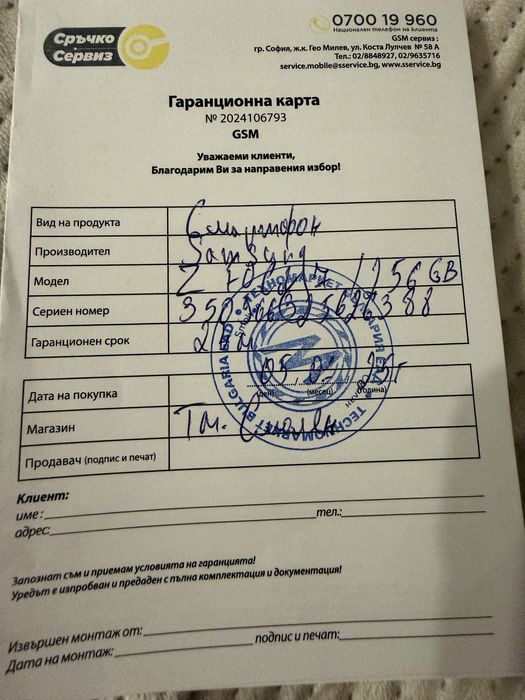 Сръчко
Сервиз
0700 19 960
Национален телефон на клиента
GSM сервиз :
гр. София, ж.к. Гео Милев, ул. Коста Лулчев № 58 А
Тел.: 02/8848927, 02/9635716
service.mobile@sservice.bg, www.sservice.bg
Гаранционна карта
№ 2024106793
GSM
Уважаеми клиенти,
Благодарим Ви за направения избор!
Вид на продукта Смартфон
Производител Samsung
Модел Z Fold 7 /256 GB
Сериен номер
Гаранционен срок
ТЕХНОМАРКЕТ БЪЛГАРИЯ ЕАД
TECHNOMARKET BULGARIA EAD
Дата на покупка
(ден) (месец) (година)
Магазин Тм.
Продавач (подпис и печат)
Клиент:
име: тел.:
адрес:
Запознат съм и приемам условията на гаранцията!
Уредът е изпробван и предаден с пълна комплектация и документация!
Извършен монтаж от: подпис и печат:
Дата на монтаж: